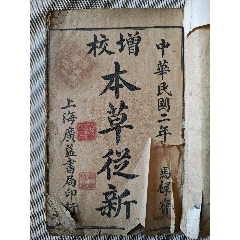 中華民國二年
馬保寶
增校
本草從新
上海廣益書局印行